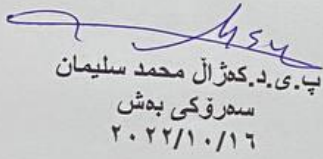 پ.ی.د.کەژاڵ محمد سلیمان
سەرۆکی بەش
٢٠٢٢/١٠/١٦